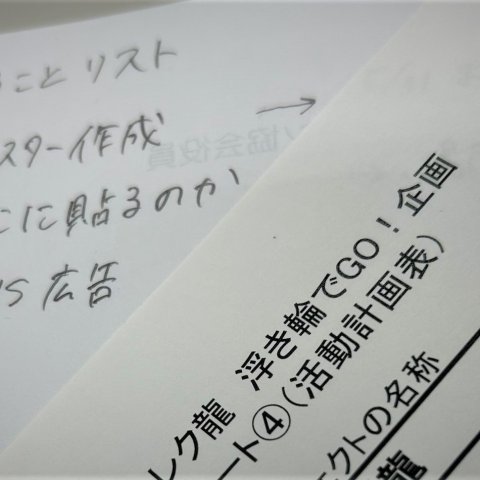 ことリスト
スター作成
こに貼るのか
NS広告
→
協会役員
レク龍 浮き輪でGO！企画
ート④(活動計画表)
ェクトの名称
龍